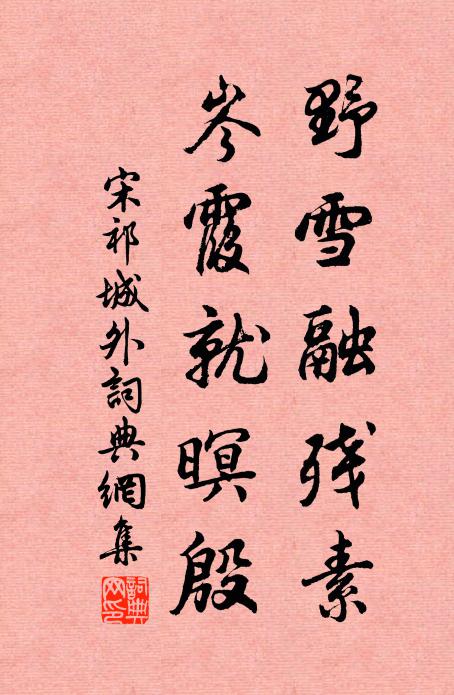 野雪融残素
岑霞就暝殷
宋祁城外詞典網集
詞典網印